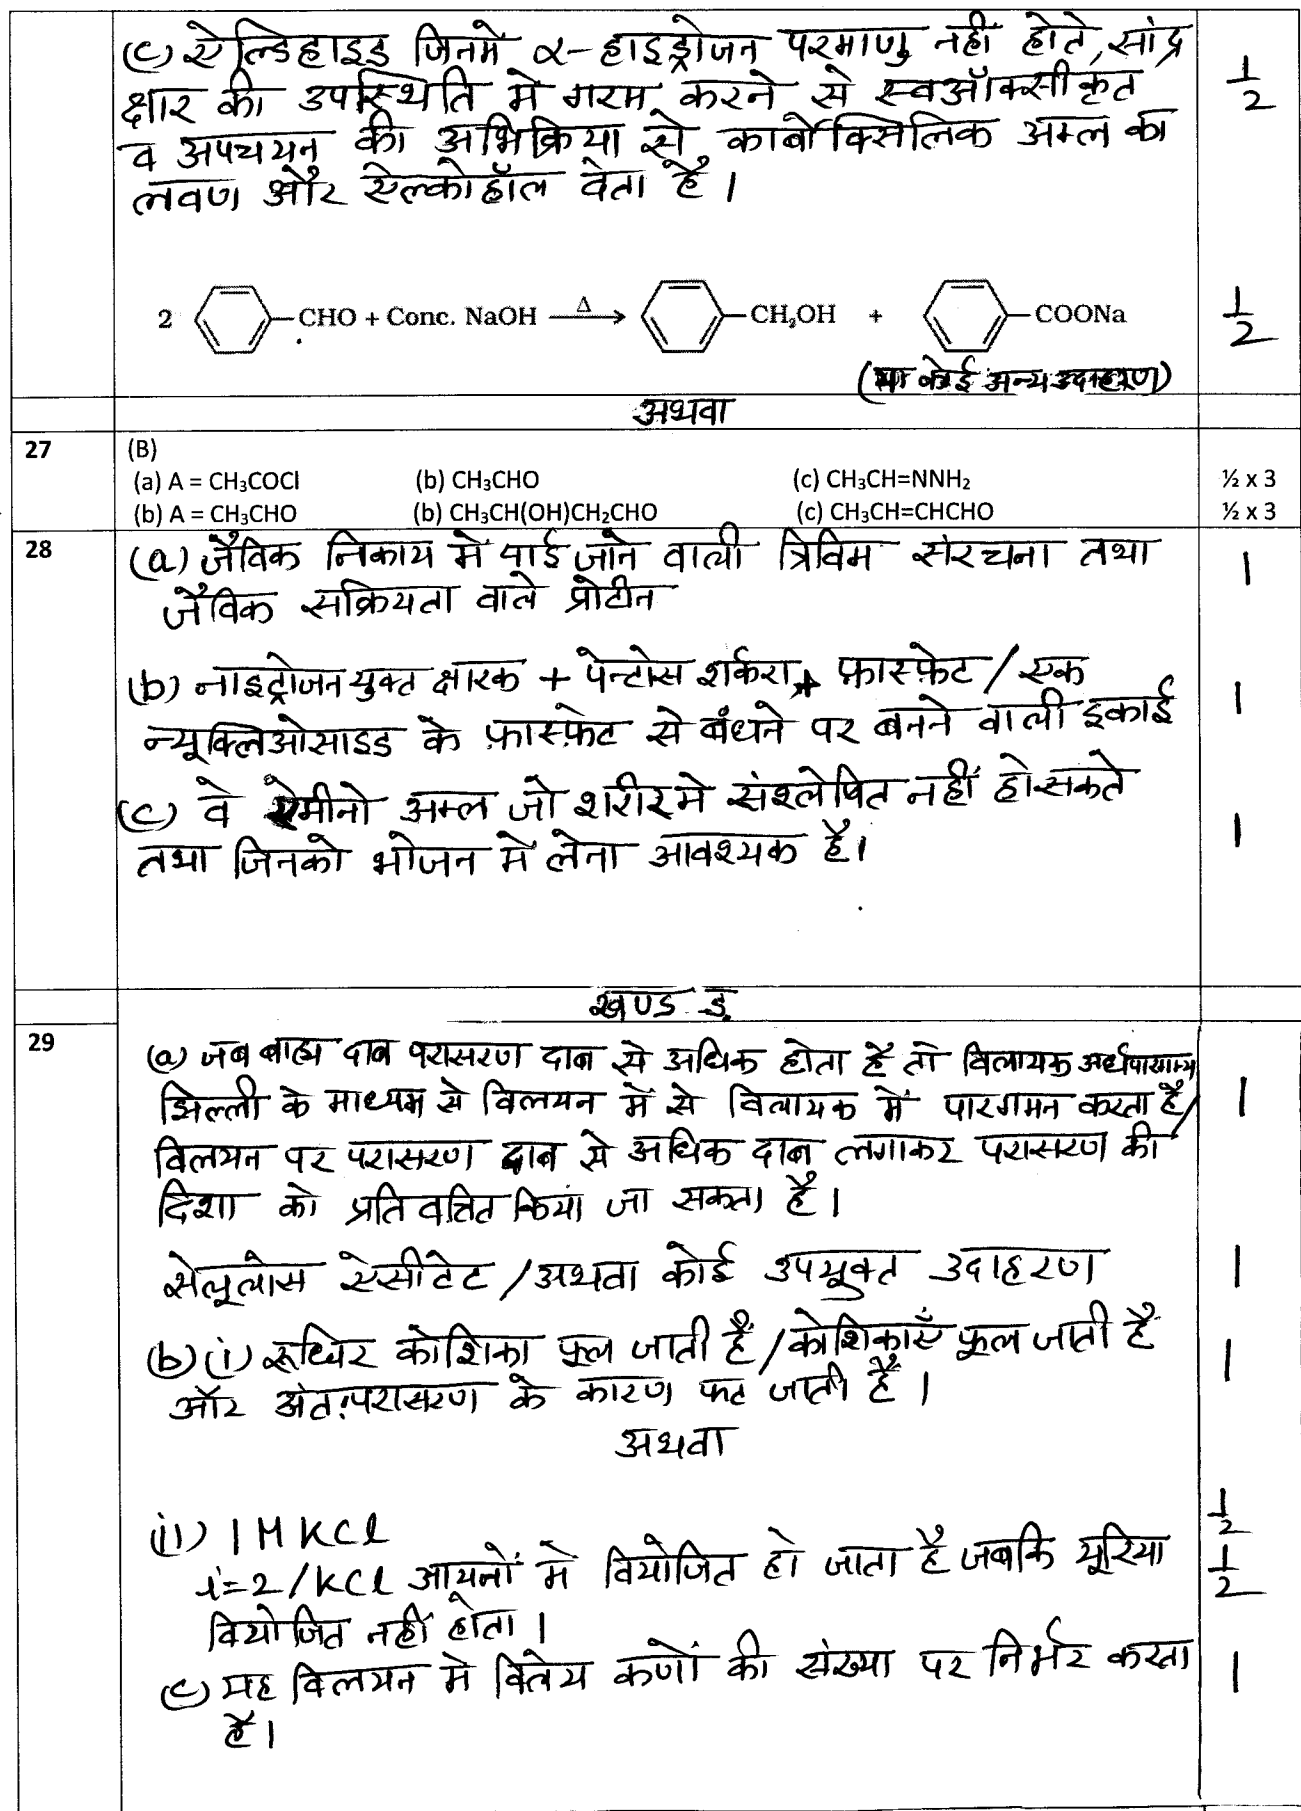 (c) ऐल्डिहाइड जिनमें α-हाइड्रोजन परमाणु नहीं होते, सांद्र 1/2
क्षार की उपस्थिति में गरम करने से स्वऑक्सीकृत
व अपचयन की अभिक्रिया से कार्बोक्सिलिक अम्ल का
लवण और ऐल्कोहॉल देता है।
2 CHO + Conc. NaOH Δ → CH₂OH + COONa 1/2
(या कोई अन्य उदाहरण)
अथवा
27 (B)
(a) A = CH₃COCl (b) CH₃CHO (c) CH₃CH=NNH₂ ½ x 3
(b) A = CH₃CHO (b) CH₃CH(OH)CH₂CHO (c) CH₃CH=CHCHO ½ x 3
28 (a) जैविक निकाय में पाई जाने वाली त्रिविम संरचना तथा 1
जैविक सक्रियता वाले प्रोटीन
(b) नाइट्रोजन युक्त क्षारक + पेन्टोस शर्करा + फ़ास्फ़ेट / एक 1
न्यूक्लिओसाइड के फ़ास्फ़ेट से बंधने पर बनने वाली इकाई
(c) वे ऐमीनो अम्ल जो शरीर मे संश्लेषित नहीं हो सकते 1
तथा जिनको भोजन में लेना आवश्यक है।
खण्ड ङ
29 (a) जब बाह्य दाब परासरण दाब से अधिक होता है तो विलायक अर्धपारगम्य
झिल्ली के माध्यम से विलयन में से विलायक में पारगमन करता है/ 1
विलयन पर परासरण दाब से अधिक दाब लगाकर परासरण की
दिशा को प्रतिवर्तित किया जा सकता है।
सेलूलोस ऐसीटेट / अथवा कोई उपयुक्त उदाहरण 1
(b) (i) रूधिर कोशिका फूल जाती हैं / कोशिकाएँ फूल जाती है 1
और अंतःपरासरण के कारण फट जाती हैं।
अथवा
(ii) 1 M KCl 1/2
i=2 / KCl आयनों मे वियोजित हो जाता है जबकि यूरिया 1/2
वियोजित नहीं होता।
(c) यह विलयन मे विलेय कणों की संख्या पर निर्भर करता 1
है।